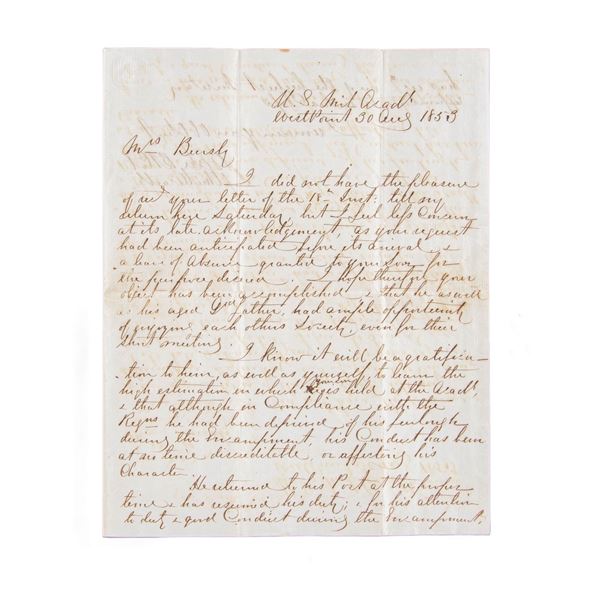 U. S. Mil Acady
West Point 30 Aug 1853
Mrs
I did not have the pleasure
of recg your letter of the 18th Inst: till my
return here Saturday, but I feel less concern
at its late acknowledgement, as your request
had been anticipated before its arrival, &
a leave of absence granted to your Son for
the purpose desired. I hope therefore your
object has been accomplished & that he as well
as his aged Gd father, had ample opportunity
of enjoying each others Society even for their
short meeting.
I know it will be a gratifica-
-tion to him, as well as yourself to learn the
high estimation in which is held at the Acady,
& that although in Compliance with the
Regns he had been deprived of his furlough
during the Encampment, his Conduct has been
at no time discreditable, or affecting his
Character.
He returned to his Post at the proper
time & has resumed his duty; & for his attention
to duty & good Conduct during the Encampment,